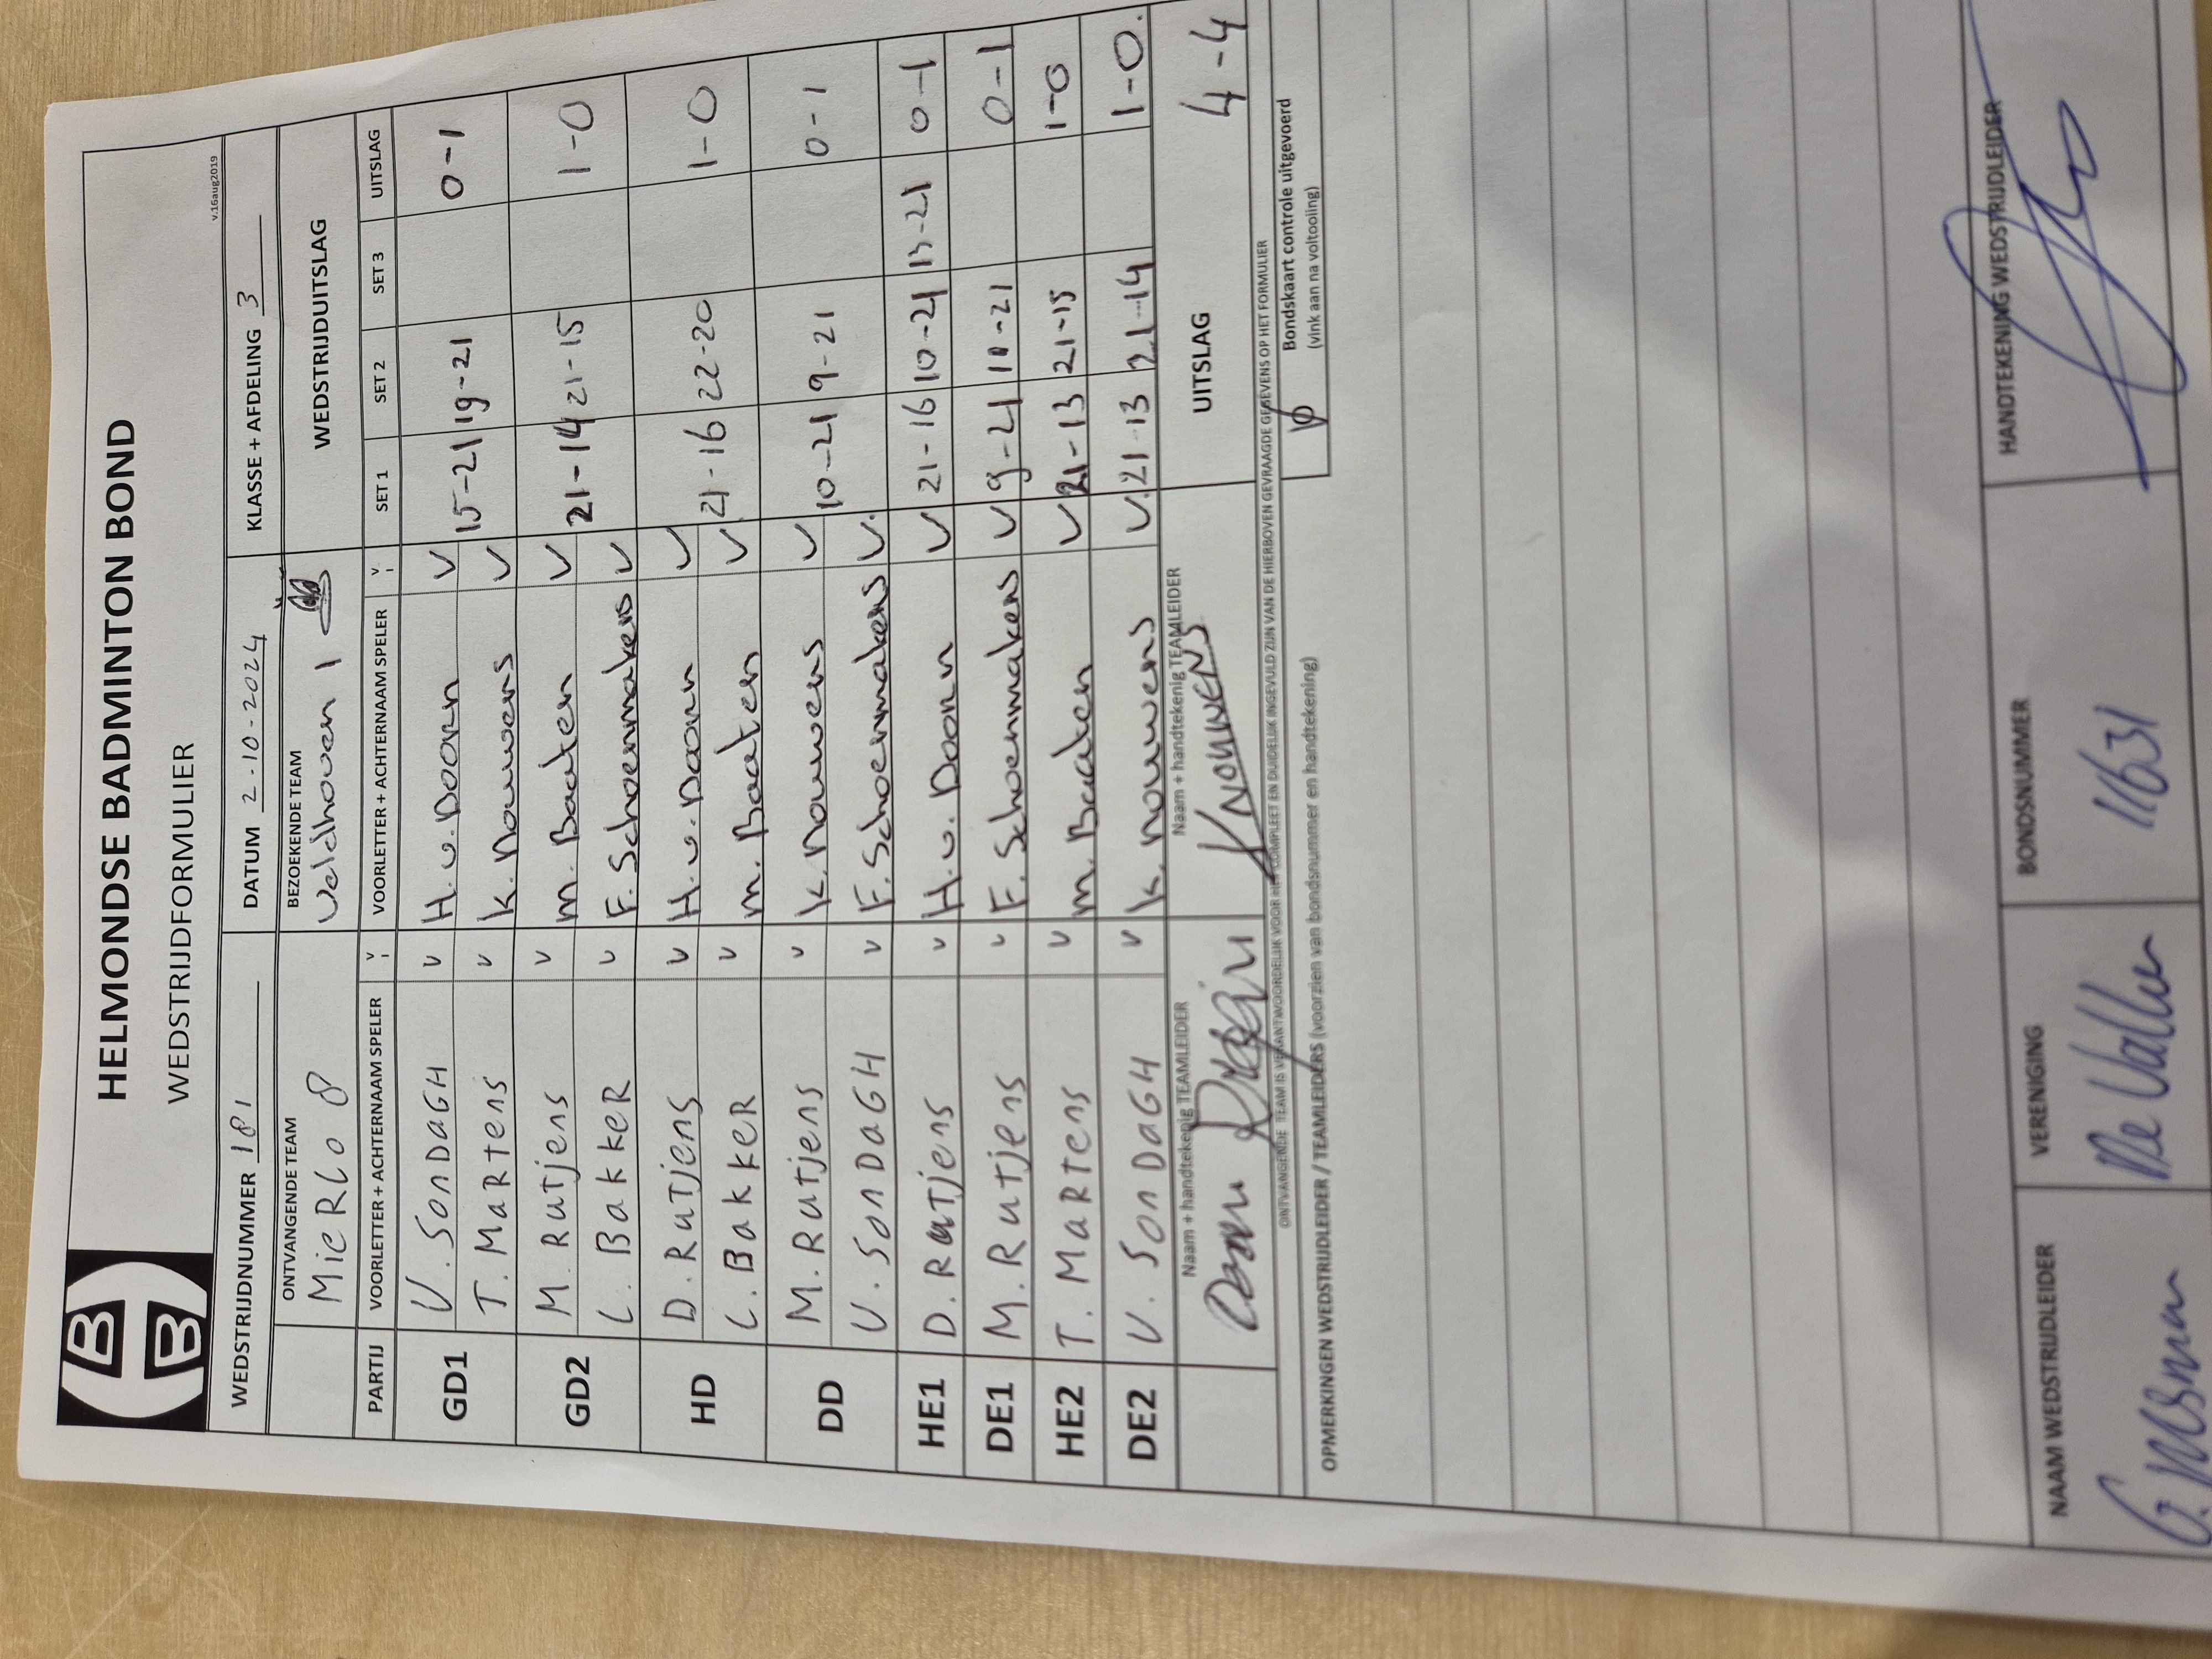 HELMONDSE BADMINTON BOND
WEDSTRIJDFORMULIER
v.16aug2019
WEDSTRIJDNUMMER 181 DATUM 2-10-2024 KLASSE + AFDELING 3
ONTVANGENDE TEAM BEZOEKENDE TEAM WEDSTRIJDUITSLAG
MieRlo 8 Veldhoven 1
PARTIJ VOORLETTER + ACHTERNAAM SPELER V VOORLETTER + ACHTERNAAM SPELER V SET 1 SET 2 SET 3 UITSLAG
GD1 V. SonDaGH v H.v.Doorn v 15-21 19-21 0-1
T. MaRtens v K. Nouwens v
GD2 M. Rutjens v M. Baaten v 21-14 21-15 1-0
L. BakkeR v F. Schoenmakers v
HD D. Rutjens v H.v.Doorn v 21-16 22-20 1-0
L. BakkeR v M. Baaten v
DD M. Rutjens v K. Nouwens v 10-21 9-21 0-1
V. SonDaGH v F. Schoenmakers v.
HE1 D. Rutjens v H.v.Doorn v 21-16 10-21 13-21 0-1
DE1 M. Rutjens v F. Schoenmakers v 9-21 11-21 0-1
HE2 T. MaRtens v M. Baaten v 21-13 21-15 1-0
DE2 V. SonDaGH v K. Nouwens v. 21-13 21-14 1-0.
Naam + handtekenig TEAMLEIDER Naam + handtekenig TEAMLEIDER UITSLAG 4-4
K NOUWENS
ONTVANGENDE TEAM IS VERANTWOORDELIJK VOOR HET COMPLEET EN DUIDELIJK INGEVULD ZIJN VAN DE HIERBOVEN GEVRAAGDE GEGEVENS OP HET FORMULIER
Bondskaart controle uitgevoerd
(vink aan na voltooiing)
OPMERKINGEN WEDSTRIJDLEIDER / TEAMLEIDERS (voorzien van bondsnummer en handtekening)
NAAM WEDSTRIJDLEIDER VERENIGING BONDSNUMMER HANDTEKENING WEDSTRIJDLEIDER
11631